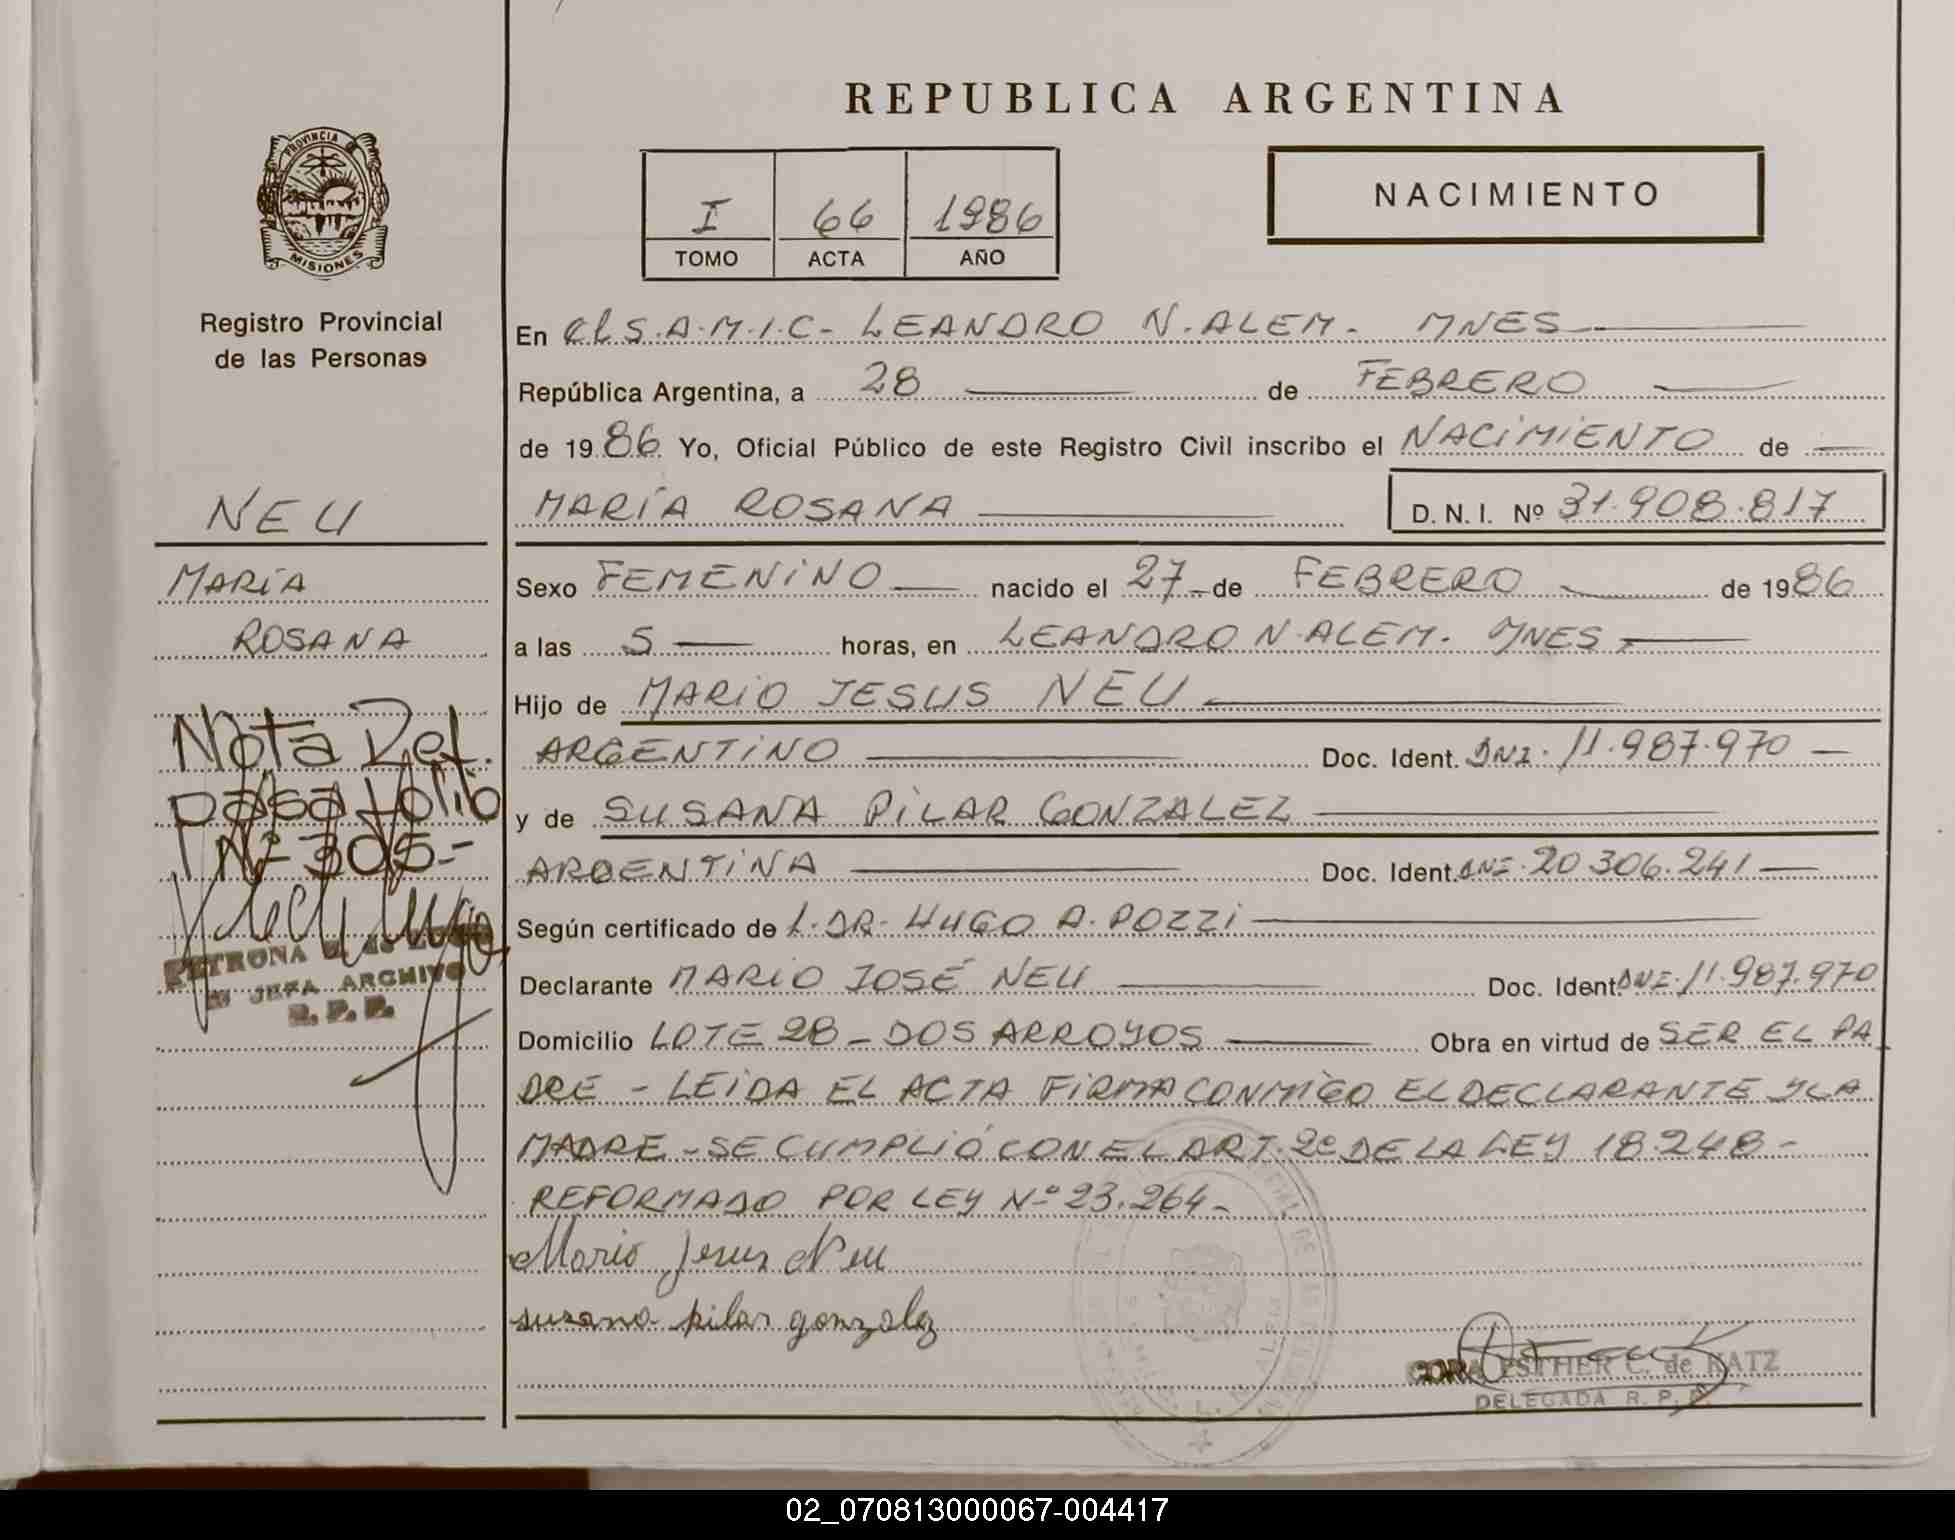 REPUBLICA ARGENTINA
PROVINCIA DE
MISIONES
Registro Provincial
de las Personas
I 66 1986
TOMO ACTA AÑO
NACIMIENTO
En el S.A.M.I.C- LEANDRO N. ALEM. MNES
República Argentina, a 28 de FEBRERO
de 1986 Yo, Oficial Público de este Registro Civil inscribo el NACIMIENTO de
MARÍA ROSANA
D. N. I. Nº 31.908.817
Sexo FEMENINO nacido el 27 de FEBRERO de 1986
a las 5 horas, en LEANDRO N. ALEM. MNES
Hijo de MARIO JESUS NEU
ARGENTINO Doc. Ident. DNI. 11.987.970
y de SUSANA PILAR GONZALEZ
ARGENTINA Doc. Ident. DNI. 20.306.241
Según certificado de DR. HUGO A. POZZI
Declarante MARIO JOSÉ NEU Doc. Ident. DNI. 11.987.970
Domicilio LOTE 28 - DOS ARROYOS Obra en virtud de SER EL PA
DRE - LEIDA EL ACTA FIRMA CONMIGO EL DECLARANTE Y LA
MADRE - SE CUMPLIÓ CON EL ART. 2º DE LA LEY 18.248 -
REFORMADO POR LEY Nº 23.264 -
Mario Jesus Neu
susana pilar gonzalez
CORA ESTHER C. de KATZ
DELEGADA R. P. P.
NEU
MARÍA
ROSANA
Nota Ref.
pasa folio
Nº 305.-
PETRONA de
JEFA ARCHIVO
R. P. P.
02_070813000067-004417